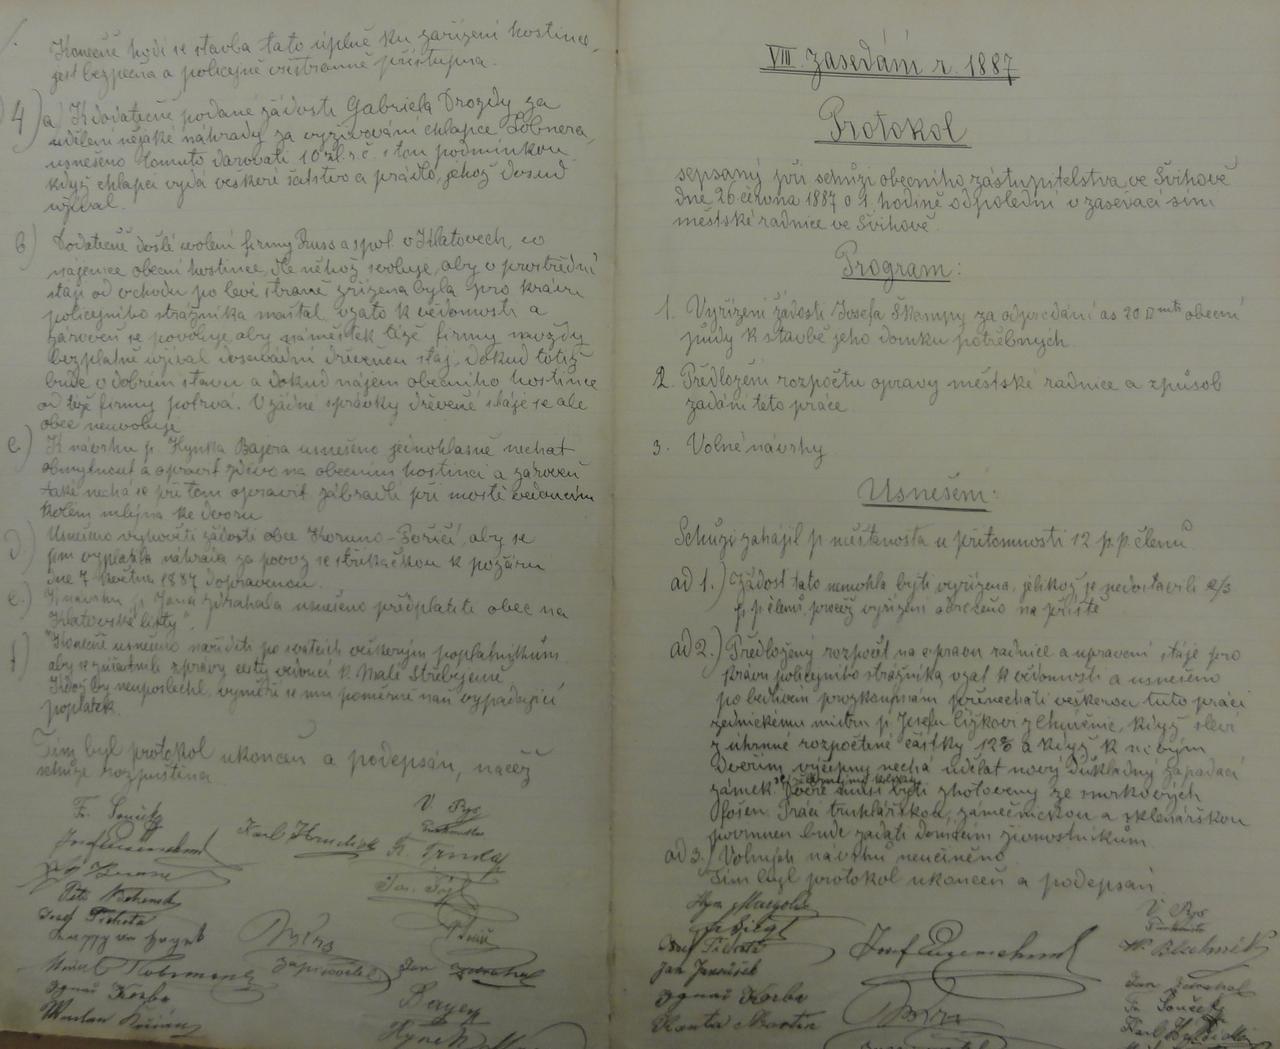 Konečně hodí se stavba tato úplně ku zařízení hostince,
jest bezpečna a policejně všestranně přístupna.
4) a) K dodatečně podané žádosti Gabriela Drozdy za
udělení nějaké náhrady za vyživování chlapce Löbnera,
usnešeno tomuto darovati 10 zl. r. č. s tou podmínkou
když chlapci vydá veškeré šatstvo a prádlo, jehož dosud
užíval.
b) Dodatečně došlé svolení firmy Russ a spol. v Klatovech, co
nájemce obecní hostince, dle něhož svoluje, aby v prostřední
stáji od vchodu po levé straně zřízena byla pro krávu
policejního strážníka maštal vzato k vědomosti a
zároveň se povoluje, aby náměstek téže firmy navždy
bezplatně užíval dosavadní dřevěnou stáj, dokud totiž
bude v dobrém stavu a dokud nájem obecního hostince
od téže firmy potrvá. V žádné správky dřevěné stáje se ale
obec neuvoluje.
c) K návrhu p. Hynka Bajera usnešeno jednohlasně nechat
obmítnout a opravit zdivo na obecním hostinci a zároveň
také nechá se při tom opravit zábradlí při mostě vedoucím
kolem mlýna ke dvoru
d) Usnešeno vyhověti žádosti obce Koruno-Poříčí, aby se
jim vyplatila náhrada za povoz se stříkačkou k požáru
dne 7 května 1887 dopravenou.
e.) K návrhu p. Jana Zdrahala usnešeno předplatiti obec na
"Klatovské listy".
f) Konečně usnešeno naříditi po svátcích veškerým poplatníkům
aby se zúčastnili zpravy cesty vedoucí k Malé Střebýcině
Kdož by neuposlechl, vyměří se mu poměrně naň vypadající
poplatek.
Tím byl protokol ukončen a podepsán, načež
schůze rozpuštěna
Fr. Souček
V. Rys
Karl
Jan
Josef Tichota
Ignač Korba
Zapisovatel
Jan Zdrahal
Václav
Hynek
VIII. zasedání r. 1887
Protokol
sepsaný při schůzi obecního zastupitelstva ve Švihově
dne 26 června 1887 o 1. hodině odpolední v zasedací síni
městské radnice ve Švihově.
Program:
1. Vyřízení žádosti Josefa Škampy za odprodání as 20 □ mtr obecní
půdy k stavbě jeho domku potřebných.
2. Předložení rozpočtu opravy městské radnice a způsob
zadání této práce.
3. Volné návrhy
Usnešení:
Schůzi zahájil p. měšťanosta u přítomnosti 12 p. p. členů
ad 1.) Žádost tato nemohla býti vyřízena, jelikož je nedostavili 2/3
p. p. členů, pročež vyřízení odročeno na příště
ad 2.) Předložený rozpočet na opravu radnice a upravení stáje pro
krávu policejního strážníka, vzat k vědomosti a usnešeno
po bedlivém prozkoumání přenechati veškerou tuto práci
zednickému mistru p. Josefu Čížkovi z Chuděnic, když sleví
z úhrnné rozpočtené částky 12% a když k novým
dveřím výčepny nechá udělat nový důkladný zapadací
zámek. Dvéře musí býti zhotoveny ze smrkových
fošen. Práci truhlářskou, zámečnickou a sklenářskou
povinnen bude zadati domácím živnostníkům
ad 3.) Volných návrhů neučiněno
Tím byl protokol ukončen a podepsán
V. Rys
Josef Tichota
Jan Janoušek
Ignač Korba
Jan Zdrahal
Fr. Souček
Karl